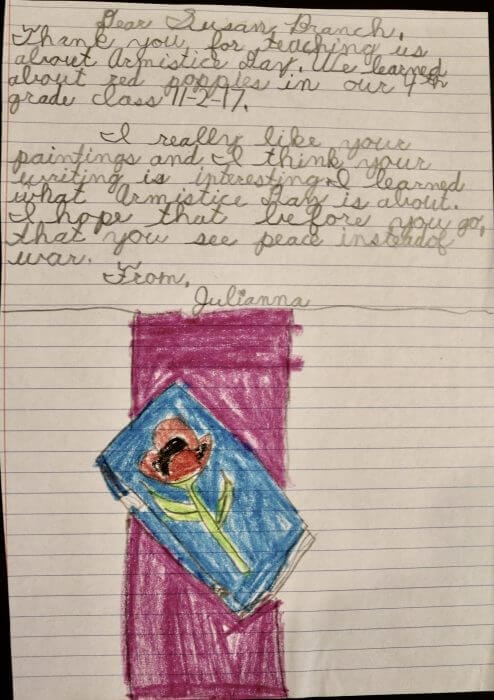 Dear Susan Branch,
Thank you, for teaching us
about Armistice Day. We learned
about red poppies in our 4th
grade class 11-2-17.
I really like your
paintings and I think your
writing is interesting. I learned
what Armistice Day is about.
I hope that before you go,
that you see peace instead of
war.
From,
Julianna